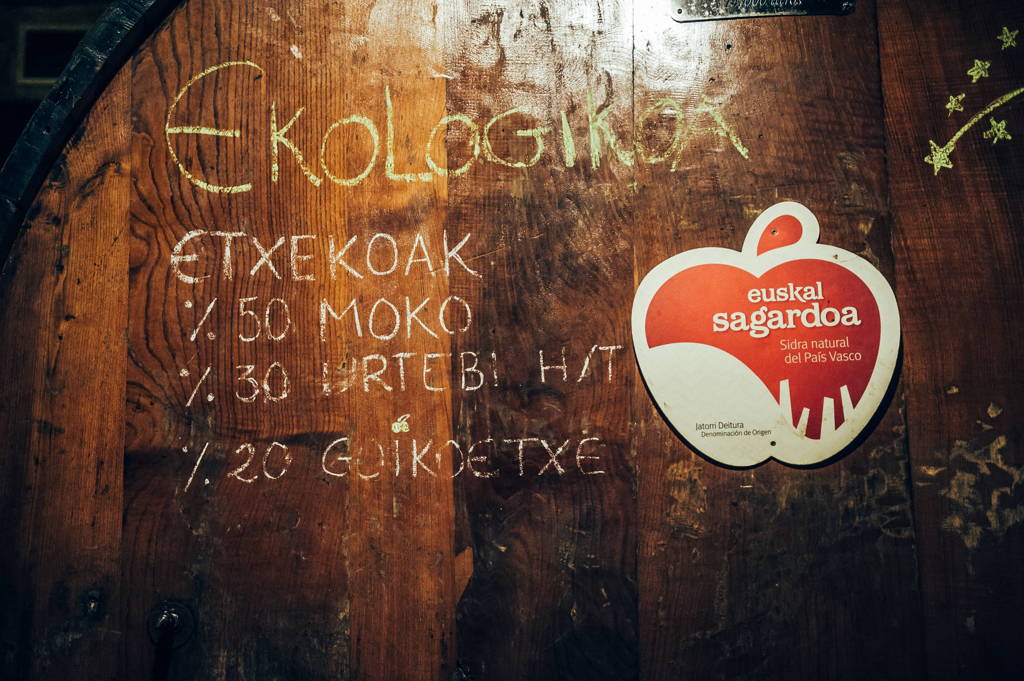 EKOLOGIKOA
ETXEKOAK
% 50 MOKO
% 30 URTEBI H/T
% 20 GOIKOETXE
euskal
sagardoa
Sidra natural
del País Vasco
Jatorri Deitura
Denominación de Origen